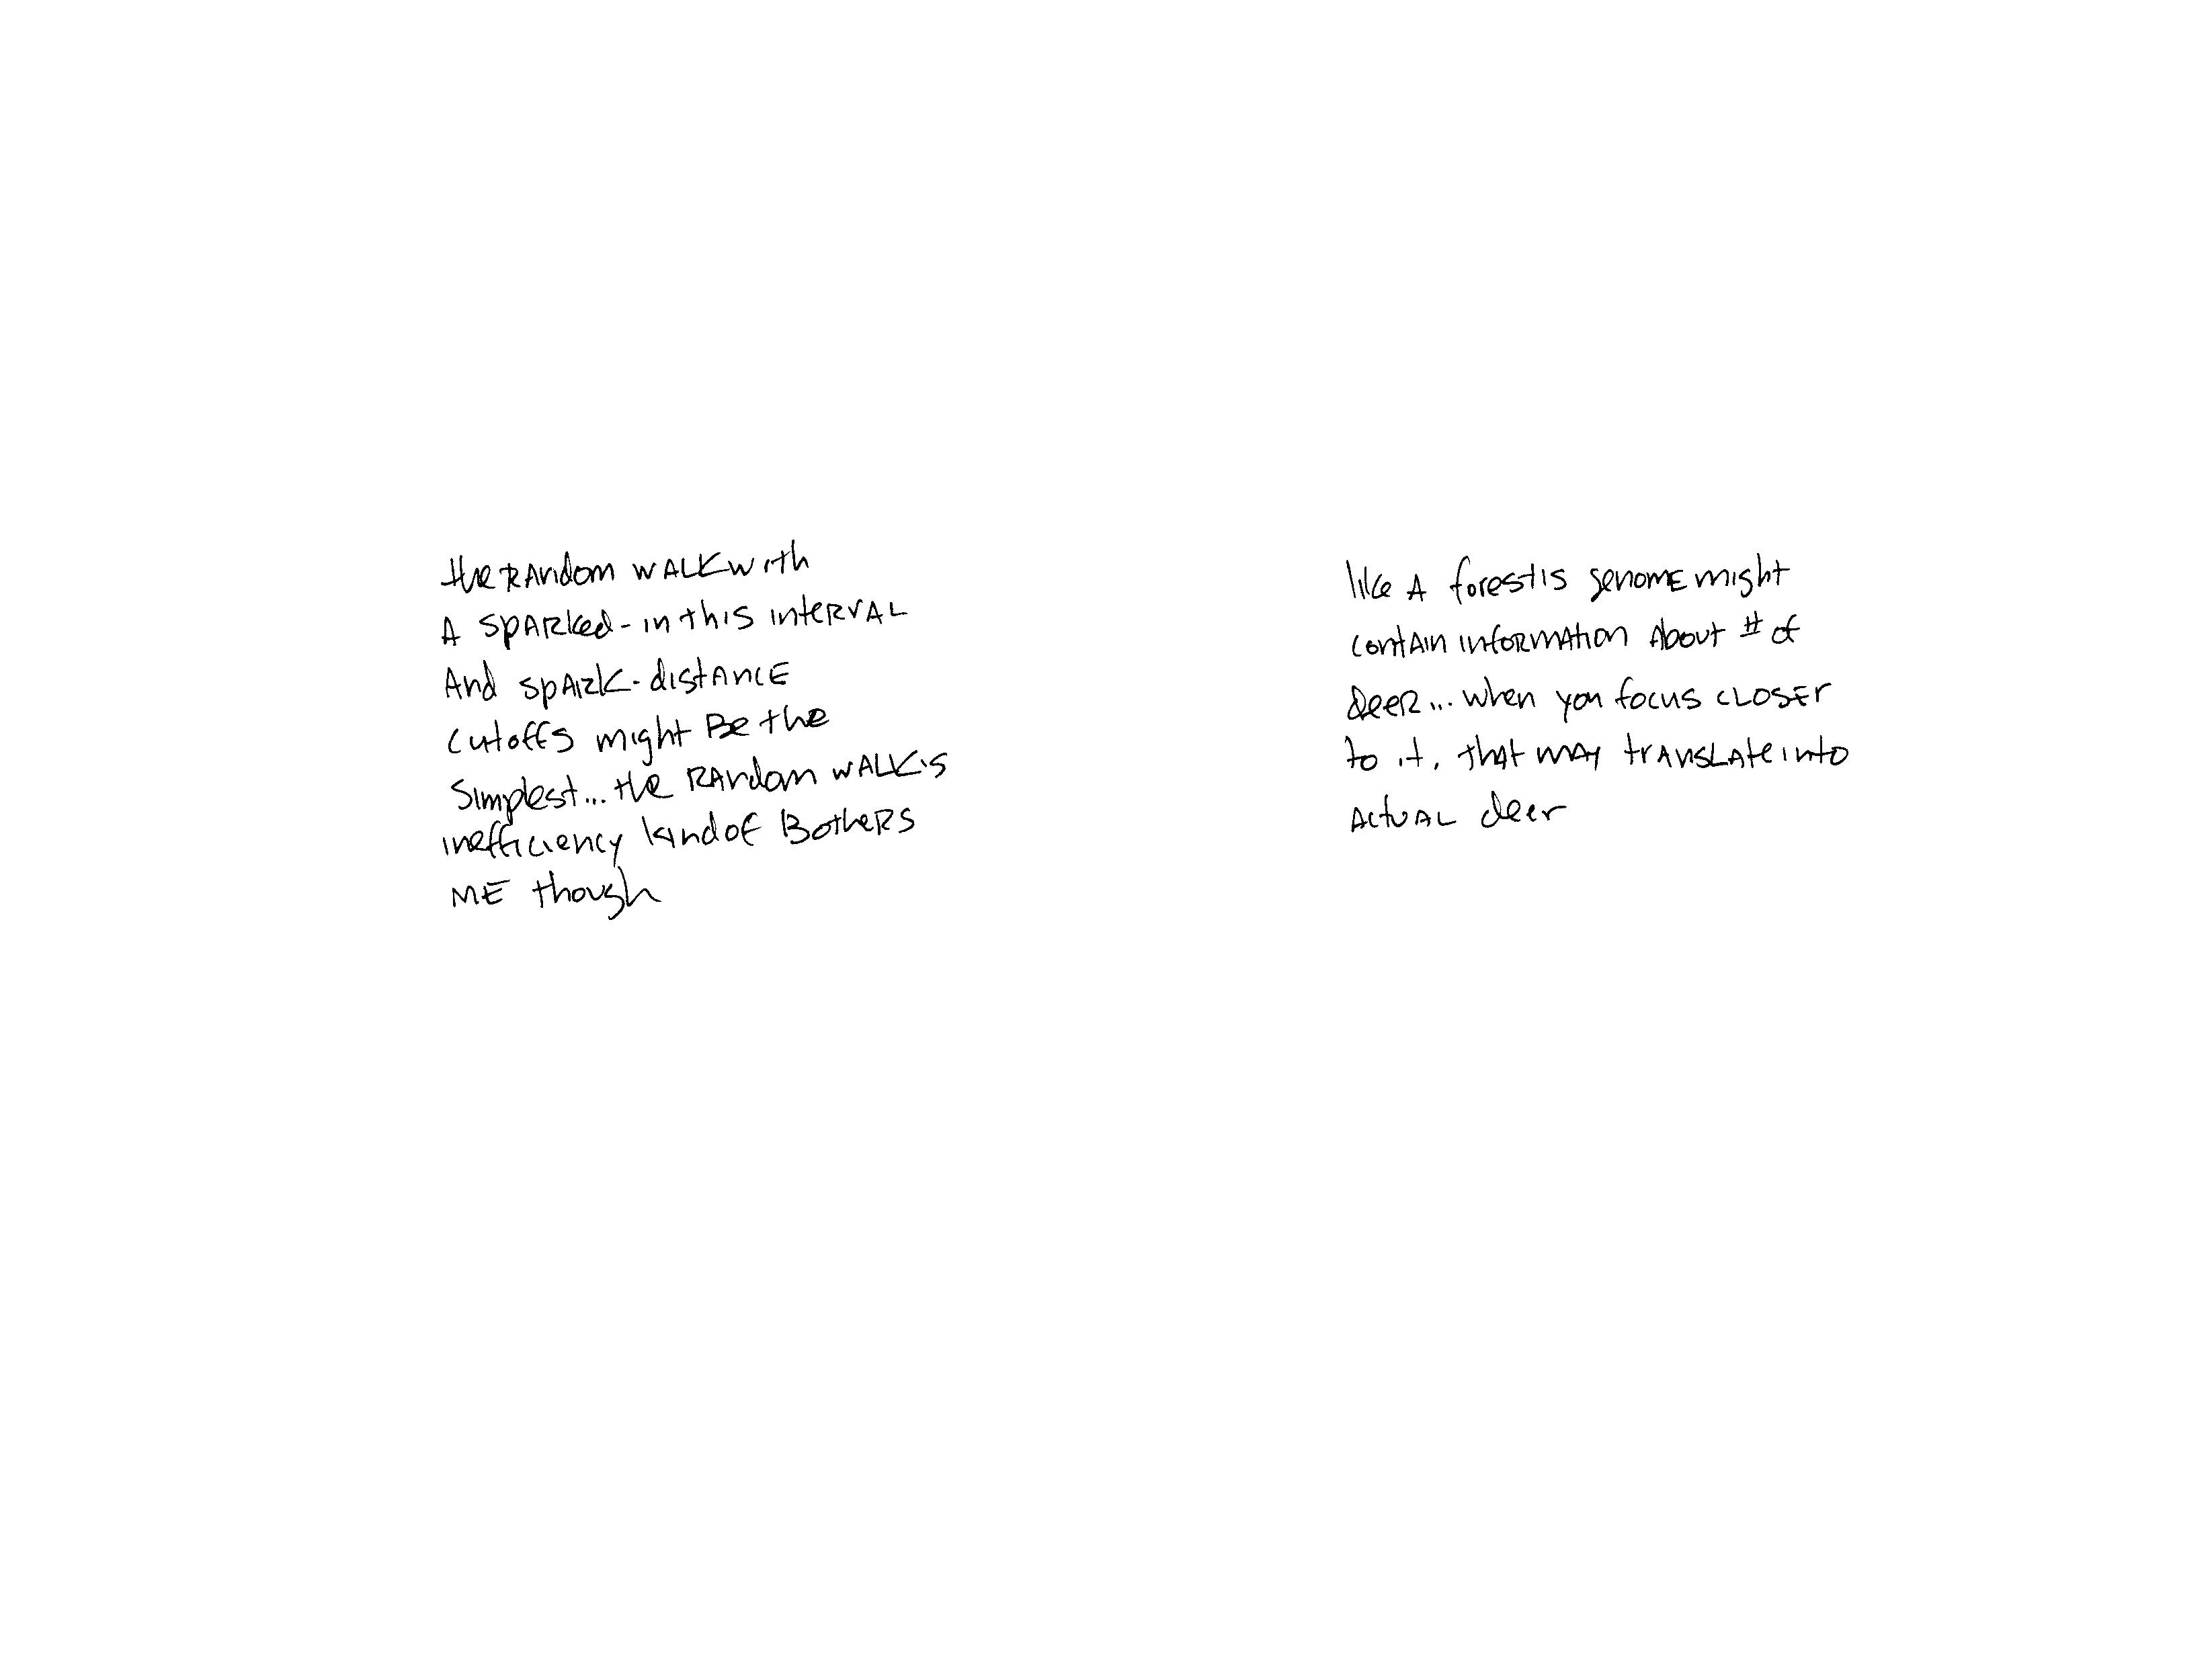 the RAndom WALK with
A SpARked - in this intERVAL
And spARK-distANCE
cutoffs might Be the
Simplest... the RAndom WALK's
inefficiency kind of BotheRS
ME though
like A forest's genomE might
contAin infoRmAtion About # of
deeR... when you focus CLOSEr
to it, thAt mAy trAnsLAte into
ActuAL deer